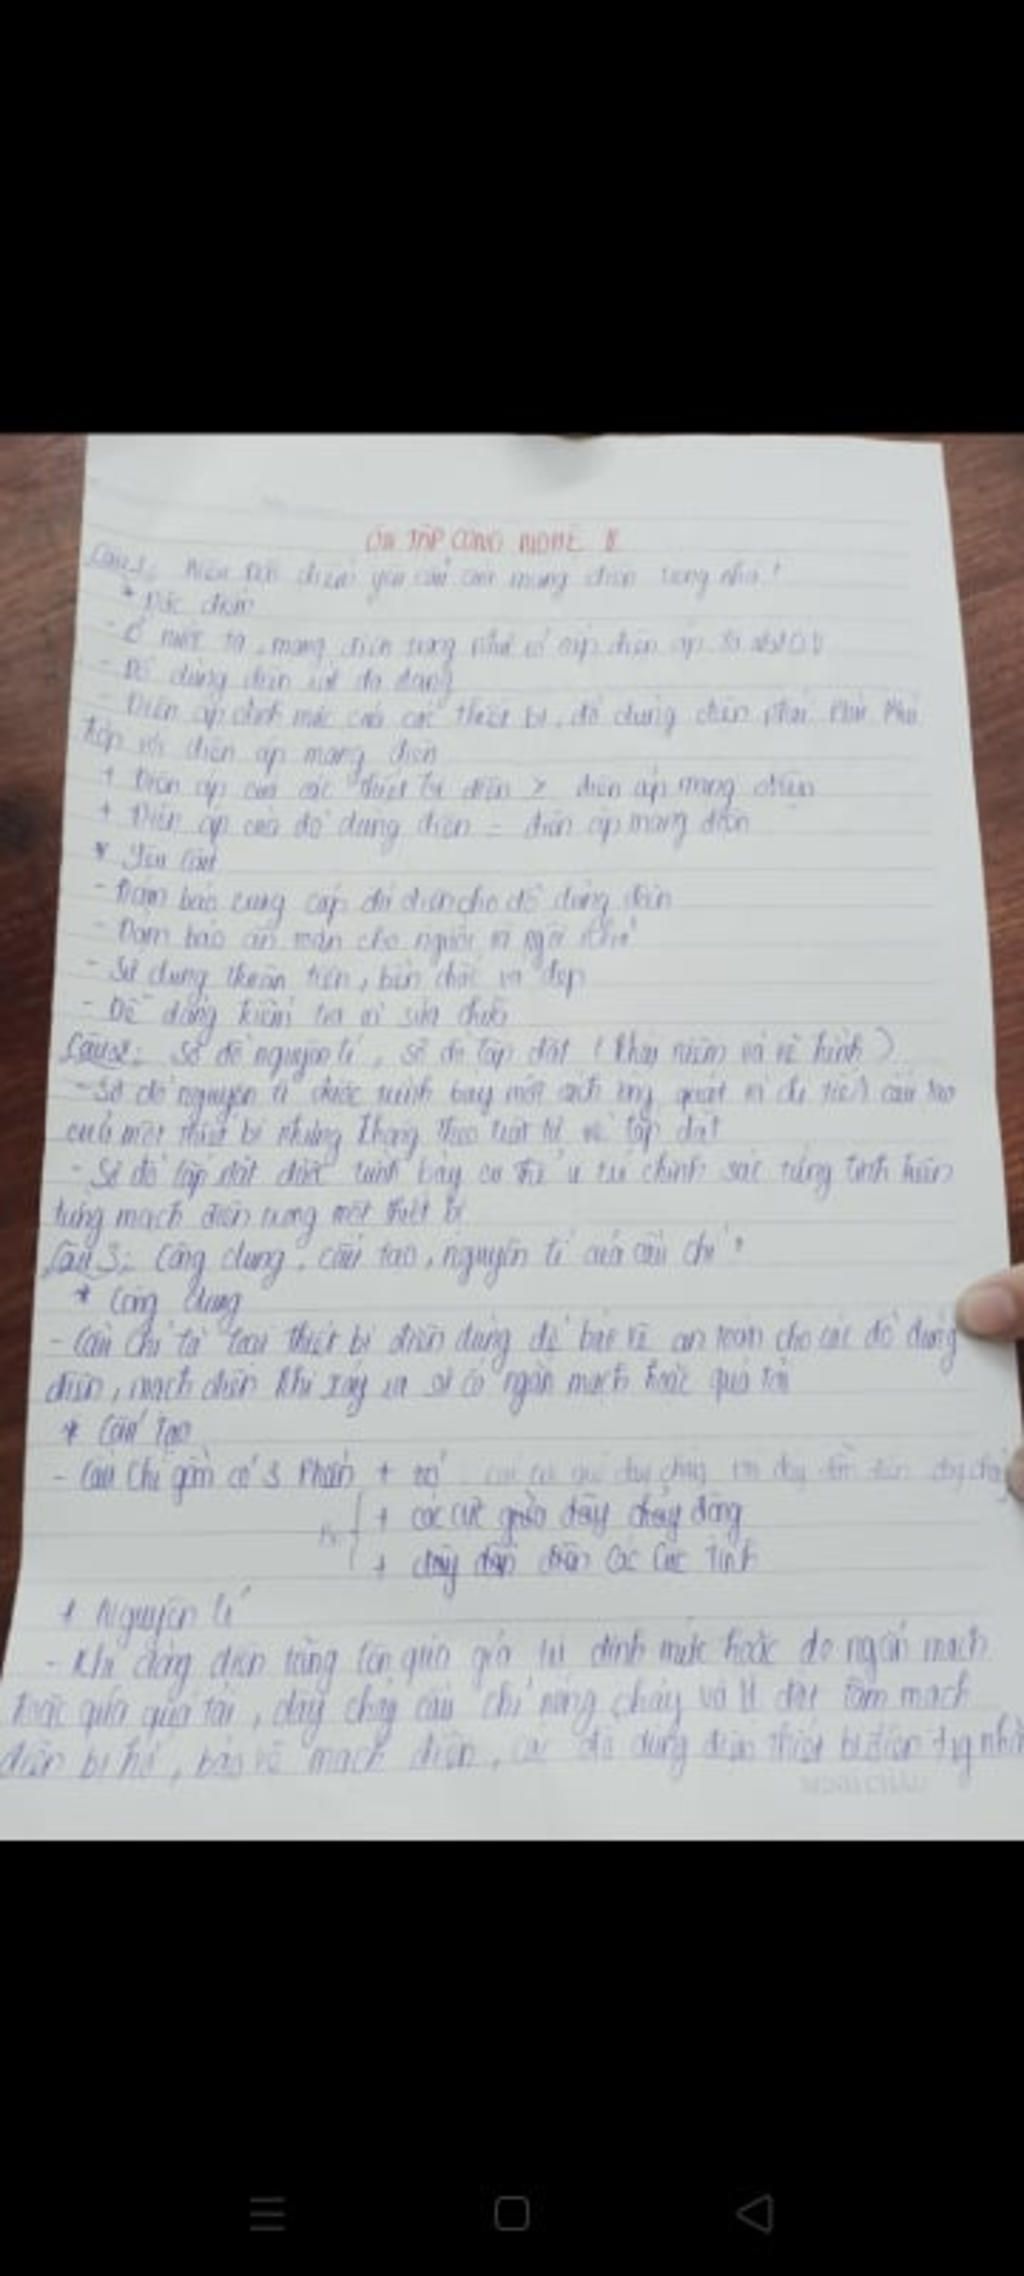 ÔN TẬP CÔNG NGHỆ 8
Câu 1: điểm yêu cầu của mạng điện trong nhà?
* Đặc điểm
- Ở nước ta, mạng điện trong nhà có cấp điện áp là
- Đồ dùng điện rất đa dạng
- Điện áp định mức của các thiết bị, đồ dùng điện phải phù
hợp với điện áp mạng điện
+ Điện áp của các thiết bị điện > điện áp mạng điện
+ Điện áp của đồ dùng điện = điện áp mạng điện
* Yêu cầu
- Đảm bảo cung cấp đủ điện cho đồ dùng điện
- Đảm bảo an toàn cho người và ngôi nhà
- Sử dụng thuận tiện, bền chắc và đẹp
- Dễ dàng kiểm tra và sửa chữa
Câu 2: Sơ đồ nguyên lí, sơ đồ lắp đặt (khái niệm và vẽ hình)
- Sơ đồ nguyên lí được trình bày một cách tổng quát cấu tạo
của một thiết bị nhưng không theo trật tự về lắp đặt
- Sơ đồ lắp đặt được trình bày cụ thể chính xác từng
từng mạch điện trong một thiết bị
Câu 3: Công dụng, cấu tạo, nguyên lí của cầu chì?
* Công dụng
- Cầu chì là loại thiết bị điện dùng để bảo vệ an toàn cho các đồ dùng
điện, mạch điện khi xảy ra sự cố ngắn mạch hoặc quá tải
* Cấu tạo
- Cầu chì gồm có 3 phần + vỏ
+ các cực giữ dây chảy
+ dây dẫn điện các cực
+ Nguyên lí
- Khi dòng điện tăng lên quá giá trị định mức hoặc do ngắn mạch
hoặc quá tải, dây chảy cầu chì nóng chảy và bị đứt làm mạch
điện bị hở, bảo vệ mạch điện, các đồ dùng điện thiết bị điện nhà